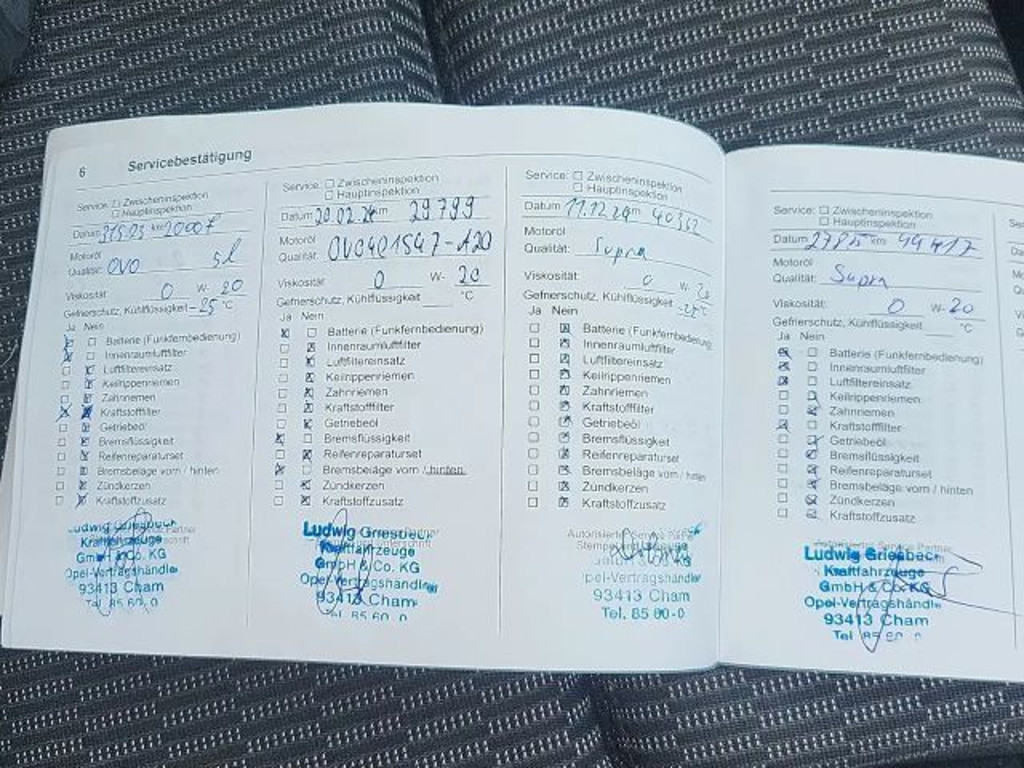 6 Servicebestätigung
Service: □ Zwischeninspektion
□ Hauptinspektion
Datum km
Motoröl
Qualität: OVO 5l
Viskosität: 0 W- 20
Gefrierschutz, Kühlflüssigkeit -25 °C
Ja Nein
Batterie (Funkfernbedienung)
Innenraumluftfilter
Luftfiltereinsatz
Keilrippenriemen
Zahnriemen
Kraftstofffilter
Getriebeöl
Bremsflüssigkeit
Reifenreparaturset
Bremsbeläge vorn / hinten
Zündkerzen
Kraftstoffzusatz
Ludwig Griesbeck
Kraftfahrzeuge
GmbH & Co. KG
Opel-Vertragshändler
93413 Cham
Tel. 85 60-0
Service: □ Zwischeninspektion
□ Hauptinspektion
Datum 20.02.24 km 29799
Motoröl
Qualität: OVO401547-A20
Viskosität: 0 W- 20
Gefrierschutz, Kühlflüssigkeit °C
Ja Nein
Batterie (Funkfernbedienung)
Innenraumluftfilter
Luftfiltereinsatz
Keilrippenriemen
Zahnriemen
Kraftstofffilter
Getriebeöl
Bremsflüssigkeit
Reifenreparaturset
Bremsbeläge vorn / hinten
Zündkerzen
Kraftstoffzusatz
Ludwig Griesbeck
Kraftfahrzeuge
GmbH & Co. KG
Opel-Vertragshändler
93413 Cham
Tel. 85 60-0
Service: □ Zwischeninspektion
□ Hauptinspektion
Datum 11.12.24 km
Motoröl
Qualität: Supra
Viskosität: 0 W- 20
Gefrierschutz, Kühlflüssigkeit -25 °C
Ja Nein
Batterie (Funkfernbedienung)
Innenraumluftfilter
Luftfiltereinsatz
Keilrippenriemen
Zahnriemen
Kraftstofffilter
Getriebeöl
Bremsflüssigkeit
Reifenreparaturset
Bremsbeläge vorn / hinten
Zündkerzen
Kraftstoffzusatz
Opel-Vertragshändler
93413 Cham
Tel. 85 60-0
Service: □ Zwischeninspektion
□ Hauptinspektion
Datum km 44417
Motoröl
Qualität: Supra
Viskosität: 0 W- 20
Gefrierschutz, Kühlflüssigkeit °C
Ja Nein
Batterie (Funkfernbedienung)
Innenraumluftfilter
Luftfiltereinsatz
Keilrippenriemen
Zahnriemen
Kraftstofffilter
Getriebeöl
Bremsflüssigkeit
Reifenreparaturset
Bremsbeläge vorn / hinten
Zündkerzen
Kraftstoffzusatz
Autorisierter Service Partner
Ludwig Griesbeck
Kraftfahrzeuge
GmbH & Co. KG
Opel-Vertragshändler
93413 Cham
Tel 85 60-0